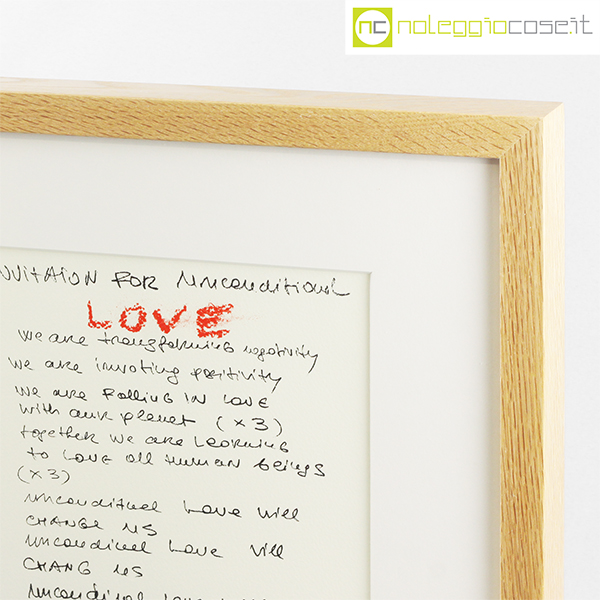 nc noleggiocose.it
NVITAION FOR UNCONDITIONAL
LOVE
WE ARE transforming negativity
WE ARE invoting positivity
WE ARE FALLING IN LOVE
WITH OUR PLANET (x3)
together WE ARE LEARNING
to LOVE ALL HUMAN BEINGS
(x3)
UNCONDITUNEL LOVE WILL
CHANGE US
UNCONDINEL LOVE WILL
CHANG US